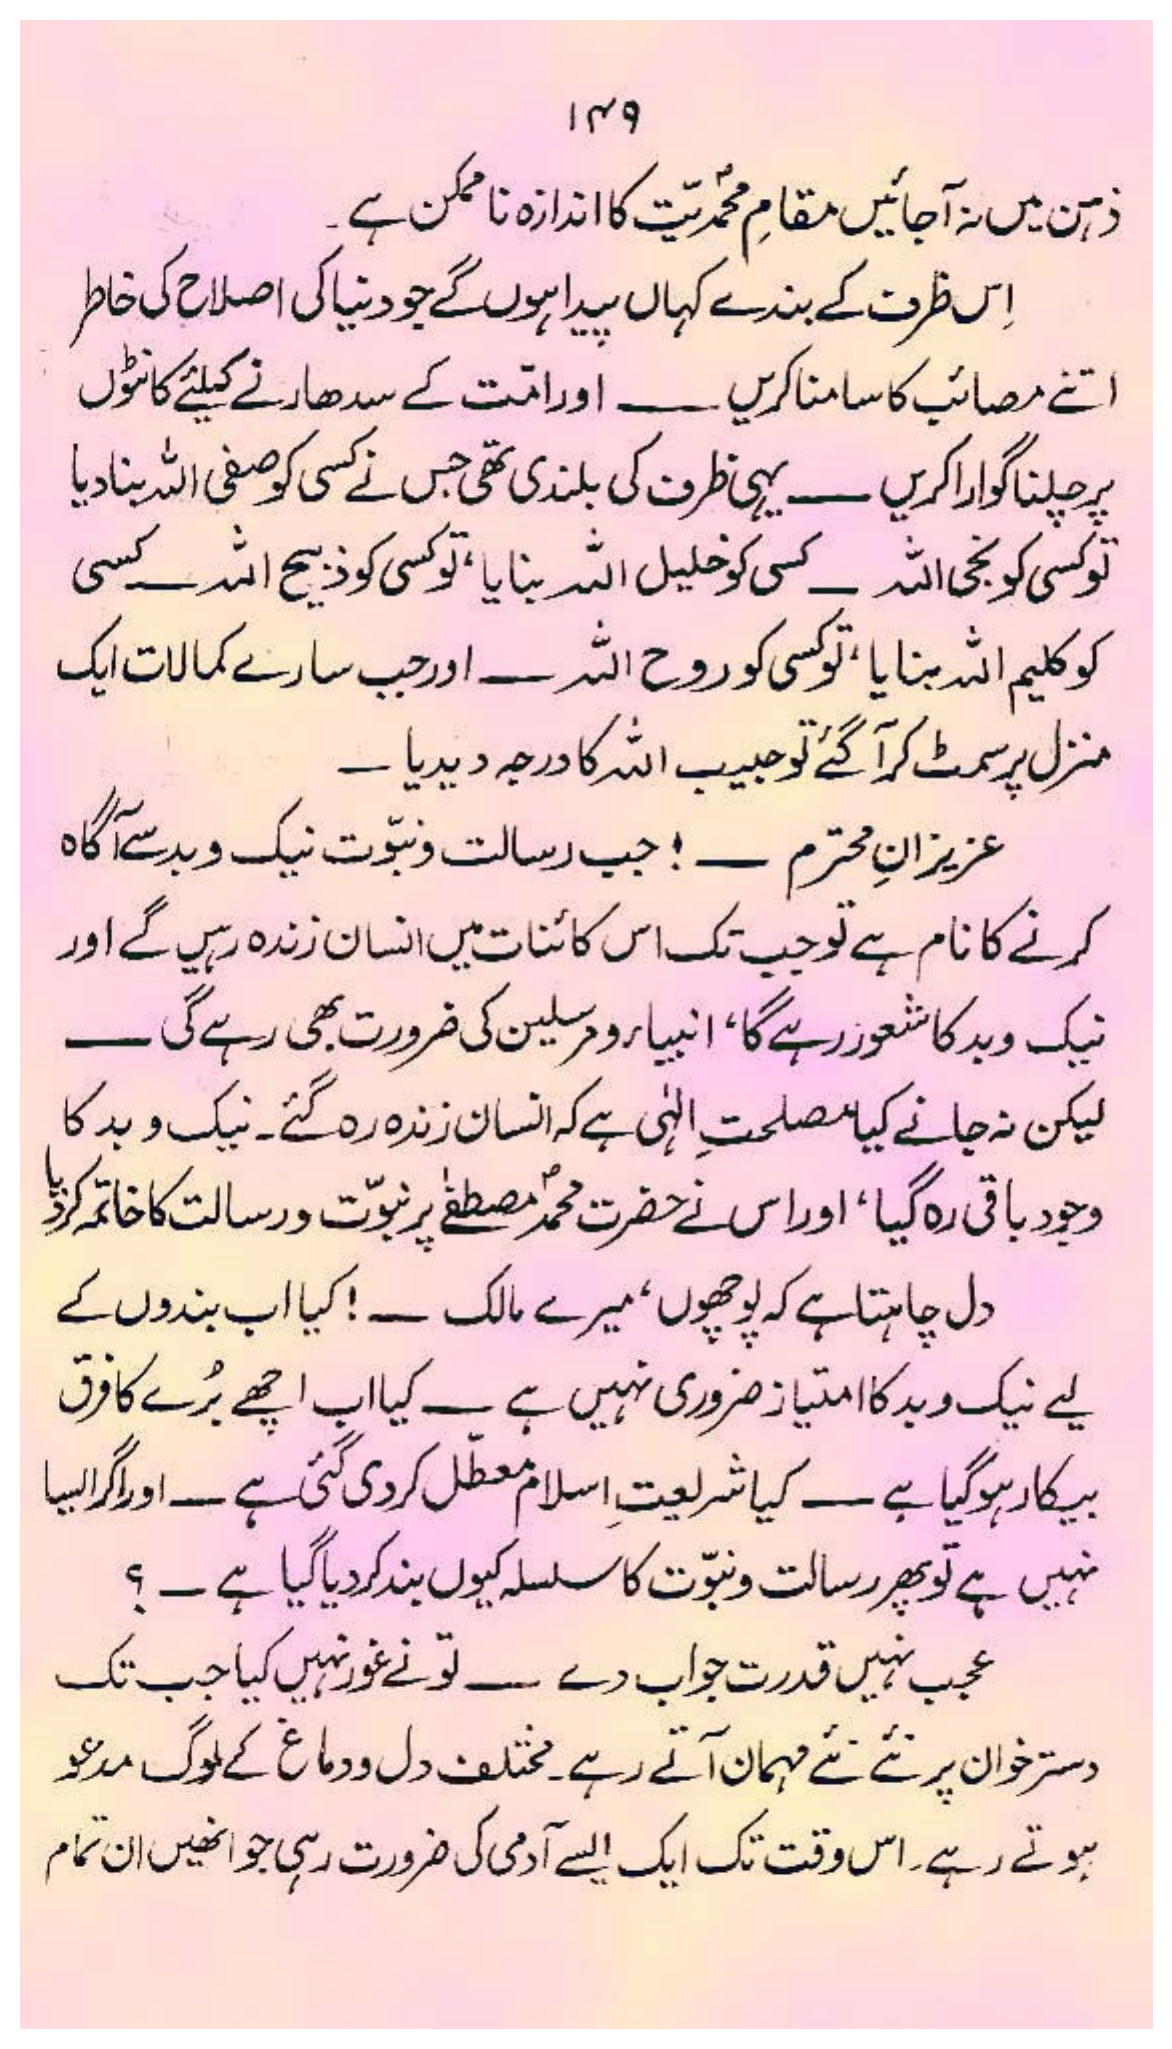 ۱۴۹
ذہن میں نہ آجائیں مقامِ محمدؐیّت کا اندازہ ناممکن ہے۔
اِس ظرف کے بندے کہاں پیدا ہوں گے جو دنیا کی اصلاح کی خاطر
اتنے مصائب کا سامنا کریں ـــ اور امّت کے سدھارنے کیلئے کانٹوں
پر چلنا گوارا کریں ـــ یہی ظرف کی بلندی تھی جس نے کسی کو صفی اللہ بنا دیا
تو کسی کو نجی اللہ ـــ کسی کو خلیل اللہ بنایا، تو کسی کو ذبیح اللہ ـــ کسی
کو کلیم اللہ بنایا، تو کسی کو روح اللہ ـــ اور جب سارے کمالات ایک
منزل پر سمٹ کر آگئے تو حبیب اللہ کا درجہ دیدیا ـــ
عزیزانِ محترم ـــ ! جب رسالت و نبوّت نیک و بد سے آگاہ
کرنے کا نام ہے تو جب تک اس کائنات میں انسان زندہ رہیں گے اور
نیک و بد کا شعور رہے گا، انبیاء و مرسلین کی ضرورت بھی رہے گی ـــ
لیکن نہ جانے کیا مصلحتِ الٰہی ہے کہ انسان زندہ رہ گئے۔ نیک و بد کا
وجود باقی رہ گیا، اور اس نے حضرت محمدؐ مصطفےٰ پر نبوّت و رسالت کا خاتمہ کر دیا
دل چاہتا ہے کہ پوچھوں، میرے مالک ـــ ! کیا اب بندوں کے
لیے نیک و بد کا امتیاز ضروری نہیں ہے ـــ کیا اب اچھے بُرے کا فرق
بیکار ہوگیا ہے ـــ کیا شریعتِ اسلام معطّل کر دی گئی ہے ـــ اور اگر ایسا
نہیں ہے تو پھر رسالت و نبوّت کا سلسلہ کیوں بند کر دیا گیا ہے ـــ ؟
عجب نہیں قدرت جواب دے ـــ تو نے غور نہیں کیا جب تک
دسترخوان پر نئے نئے مہمان آتے رہے۔ مختلف دل و دماغ کے لوگ مدعو
ہوتے رہے۔ اس وقت تک ایک ایسے آدمی کی ضرورت رہی جو انھیں ان تمام